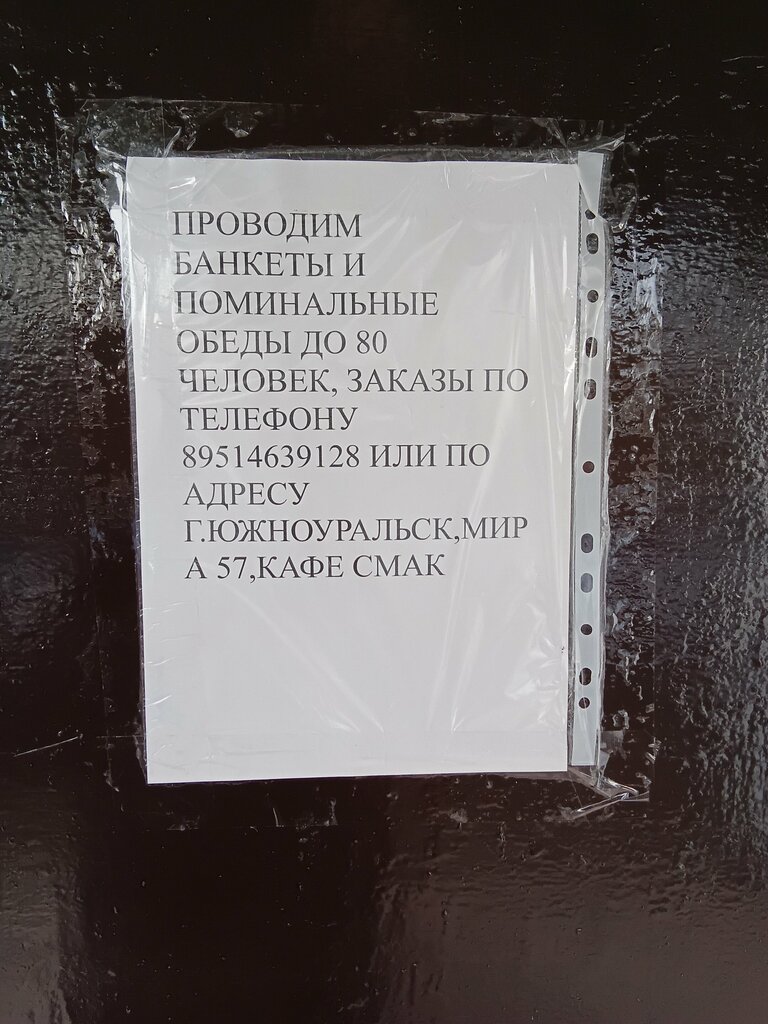 ПРОВОДИМ
БАНКЕТЫ И
ПОМИНАЛЬНЫЕ
ОБЕДЫ ДО 80
ЧЕЛОВЕК, ЗАКАЗЫ ПО
ТЕЛЕФОНУ
89514639128 ИЛИ ПО
АДРЕСУ
Г.ЮЖНОУРАЛЬСК,МИР
А 57,КАФЕ СМАК